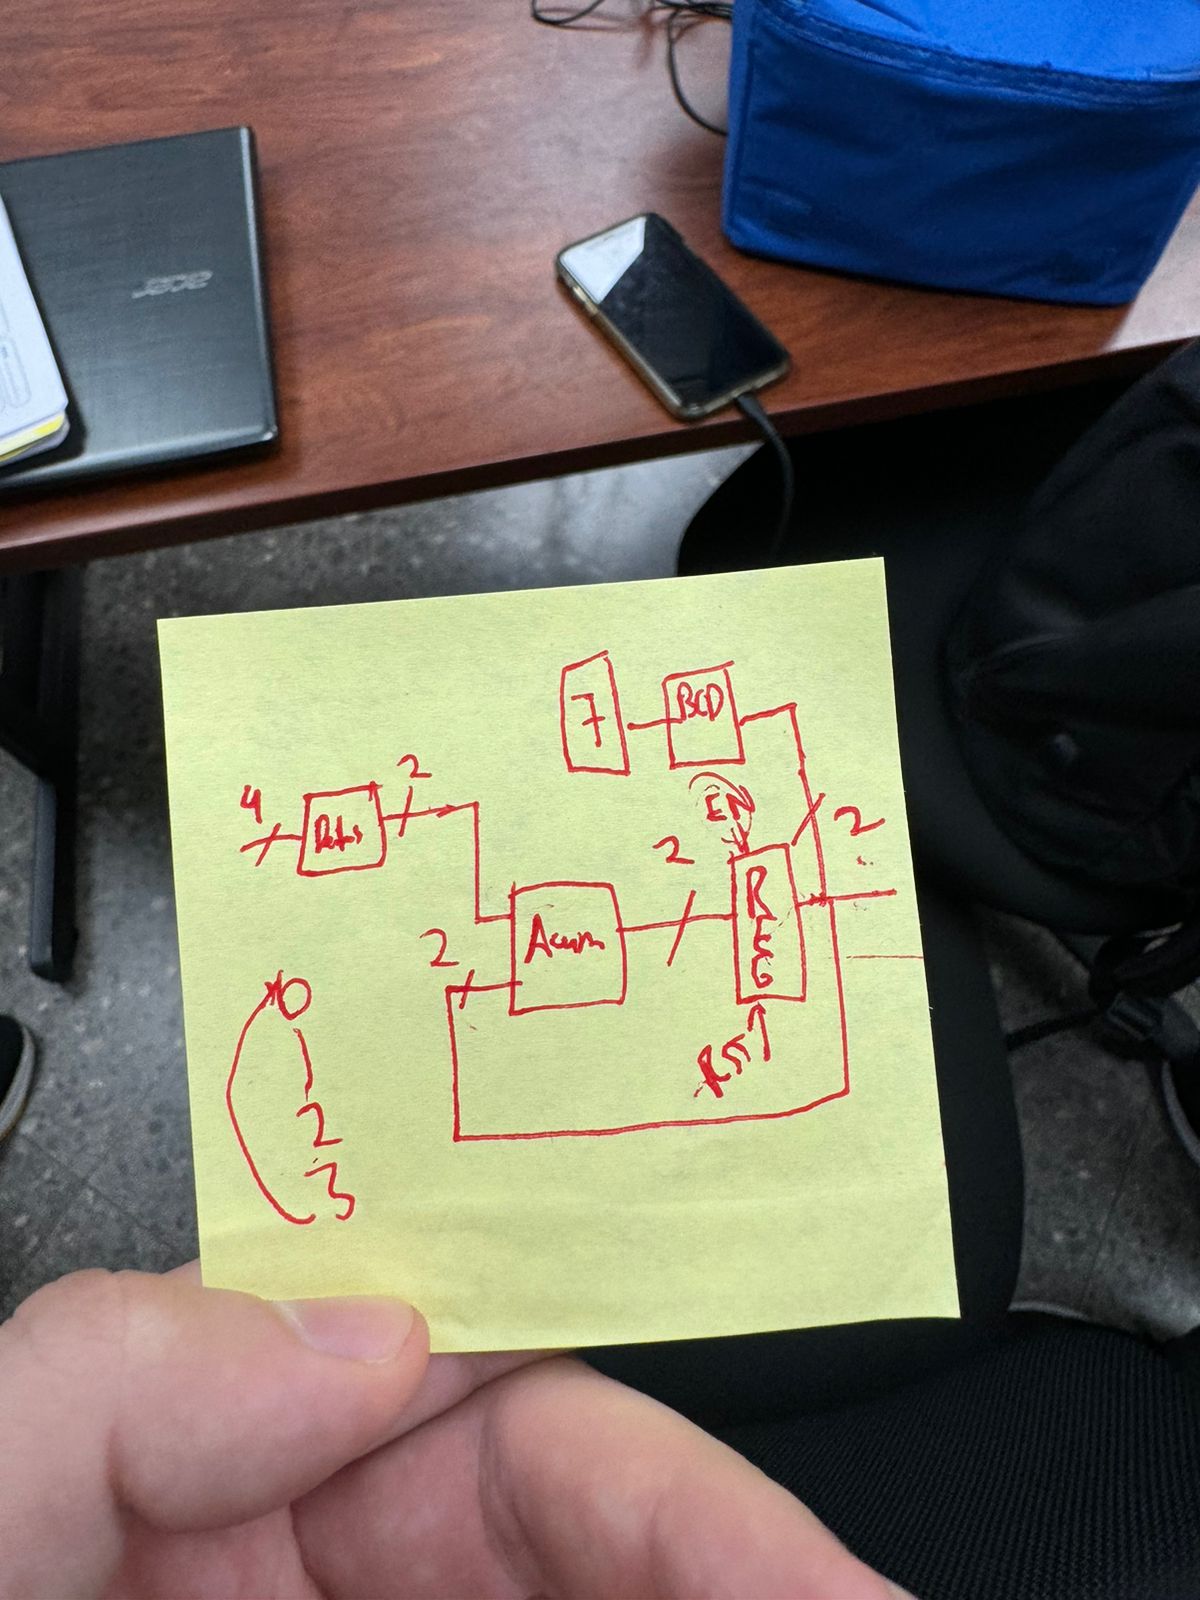 acer
7
BCD
4
Datos
2
EN
2
2
Acum
REG
2
RST
0
1
2
3